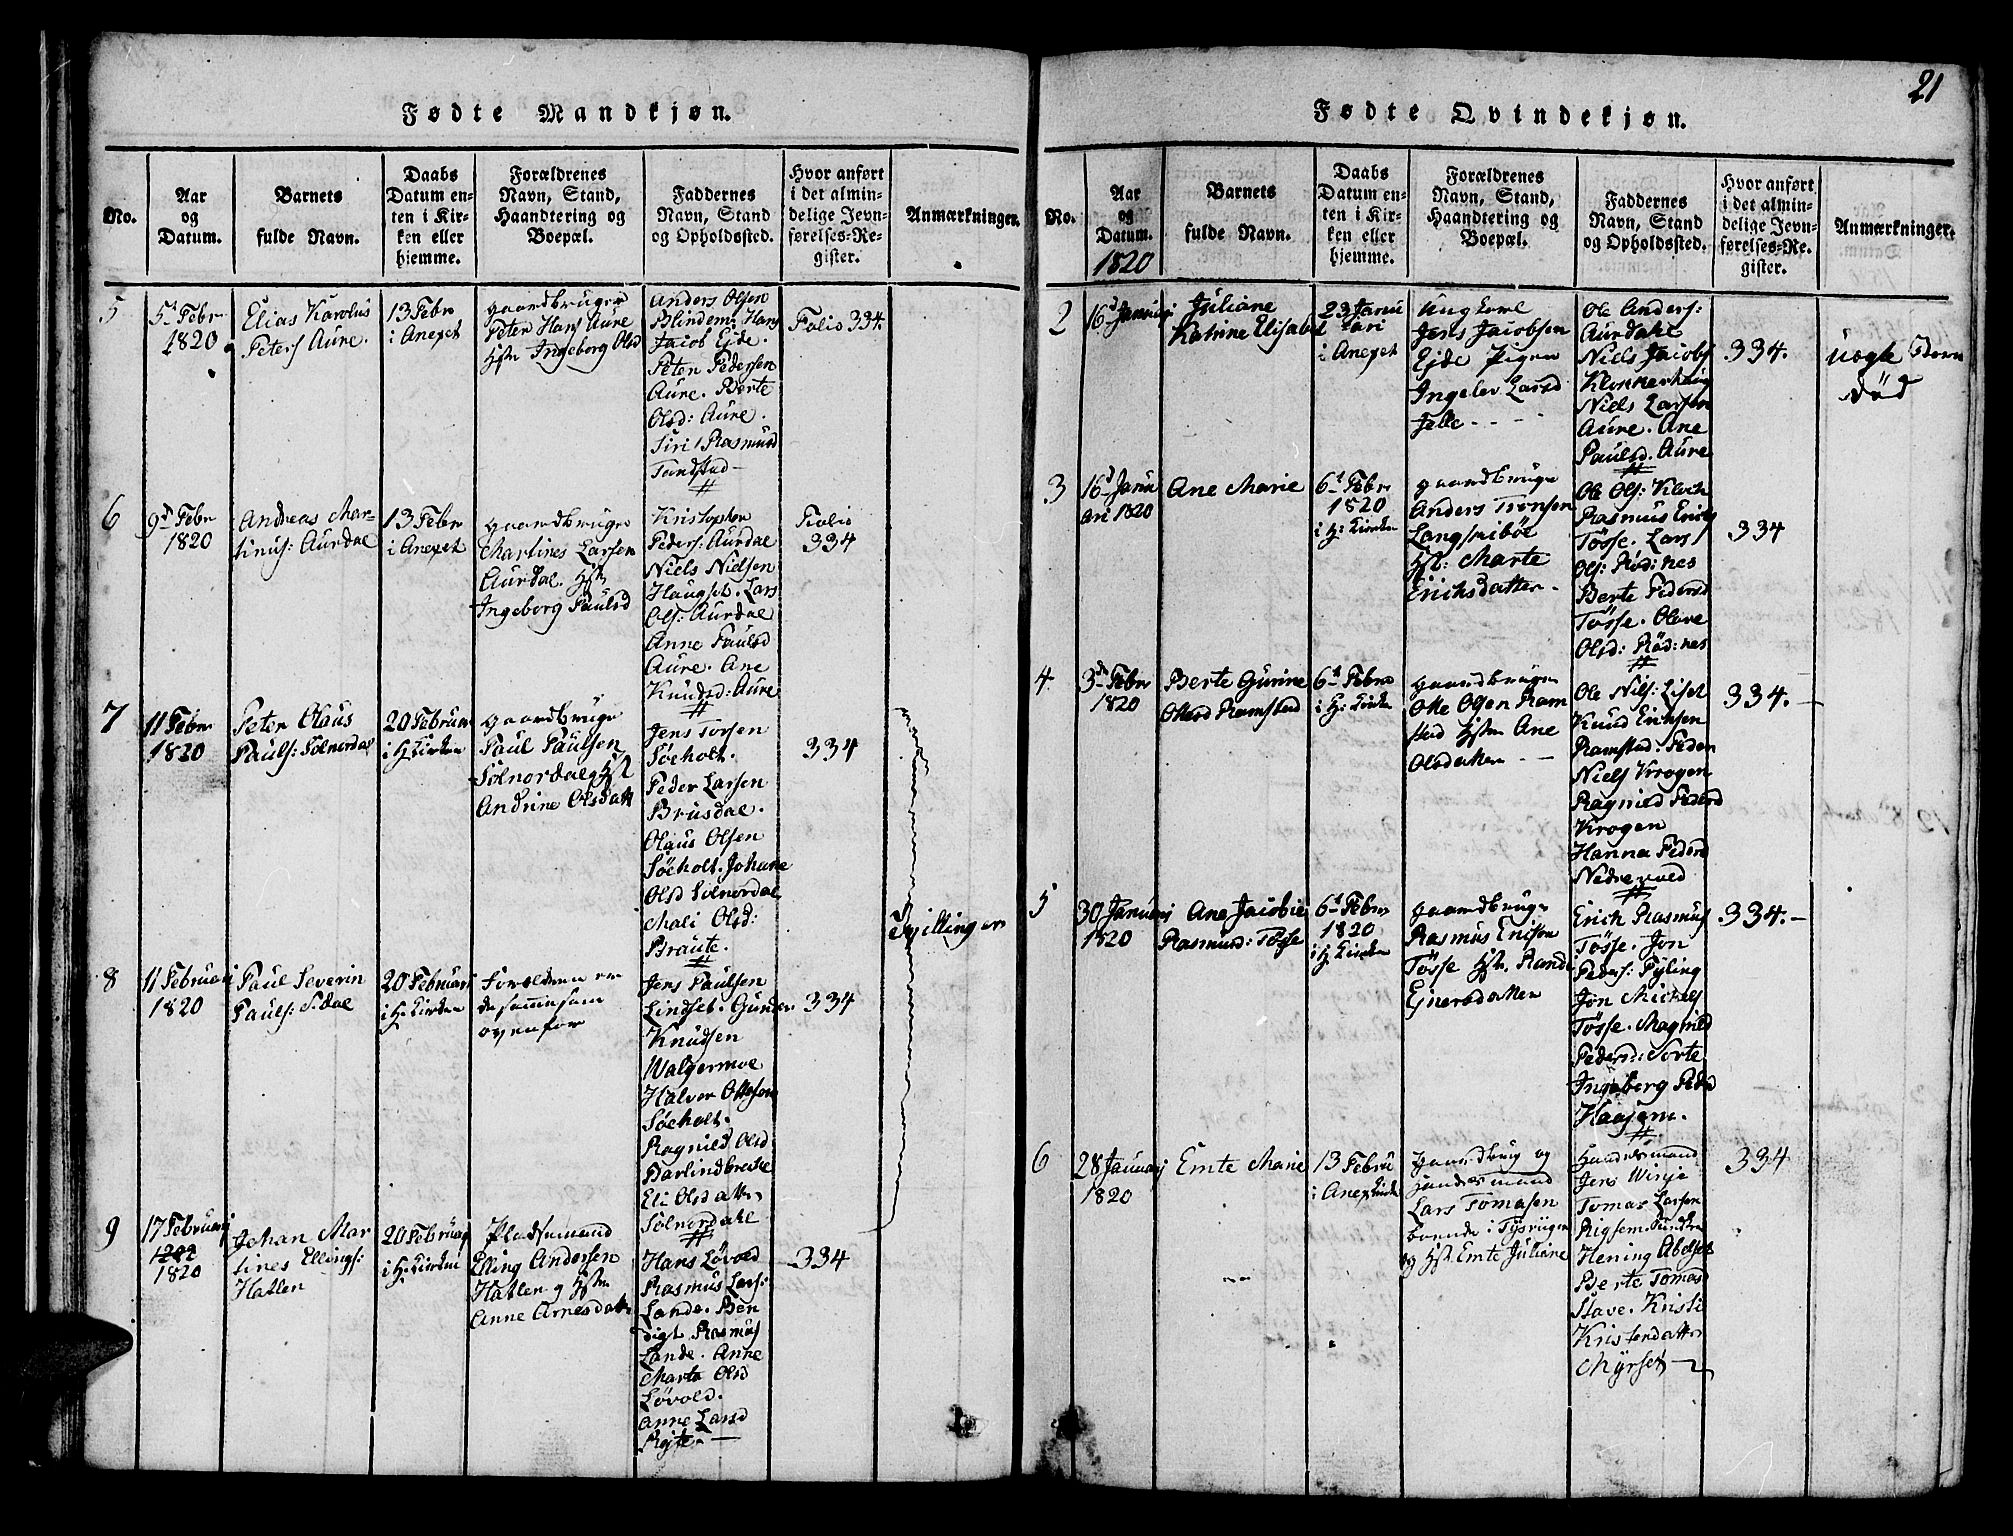 21
Fødte Mandkjøn.
No.
Aar
og
Datum.
Barnets
fulde Navn.
Daabs
Datum en-
ten i Kir-
ken eller
hjemme.
Forældrenes
Navn, Stand,
Haandtering og
Boepæl.
Faddernes
Navn, Stand
og Opholdssted.
Hvor anført
i det almin-
delige Jevn-
førelses-Re-
gister.
Anmærkninger.
5
5 Febr
1820
Elias Karolus
Peters Aure.
13 Febr
i Anexet
gaardbruger
Peter Hans Aure
Hst Ingeborg Olsd
Anders Olsen
Blindem. Hans
Jacob Ejde.
Peter Pedersen
Aure. Berte
Olsd: Aure.
Siri Rasmusd
Tandstad
Folio 334.
6
9d Febr
1820
Andreas Mar-
tinus: Aurdal
13 Febr
i Anexet
gaardbruger
Martines Larsen
Aurdal. Hst
Ingeborg Paulsd
Kristopher
Peders: Aurdal
Niels Nielsen
Haugset. Lars
Ols: Aurdal
Anne Paulsd
Aure. Ane
Knudsd: Aure
Folio
334
7
11 Febr
1820
Peter Olaus
Pauls: Solnordal
20 Februar
i H: Kirken
gaardbruger
Paul Paulsen
Solnordal og Hst
Andrine Olsdatt
Jens Torsen
Søeholt.
Peder Larsen
Brusdal.
Olaus Olsen
Søeholt. Johane
Olsd Solnordal
Mali Olsd:
Braute.
334
Tvillinger
8
11 Februari
1820
Paul Severin
Pauls: S:dal
20 Februari
i H: Kirken
Foreldrene er
de samme som
ovenfor
Jens Paulsen
Lindset. Gunder
Knudsen
Walgermoe
Halver Ottesen
Søeholt.
Ragnild Olsd
Eli Olsdatter
Solnordahl
334
9
17 Februarj
1820
Johan Mar
tines Ellings:
Hatlen
20 Februarj
i H: Kirken
Pladsemand
Elling Andersen
Hatlen og Hst
Anne Arnesdatt
Hans Løvold
Rasmus Lars:
Lande. Ben
digt Rasmus
Lande. Anne
Marta Olsd
Løvold.
Anne Larsd
334
Fødte Qvindekjøn.
No.
Aar
og
Datum.
1820
Barnets
fulde Navn.
Daabs
Datum en-
ten i Kir-
ken eller
hjemme.
Forældrenes
Navn, Stand,
Haandtering og
Boepæl.
Faddernes
Navn, Stand
og Opholdssted.
Hvor anført
i det almin-
delige Jevn-
førelses-Re-
gister.
Anmærkninger.
2
16d Januari
Juliane
Katrine Elisabet
23 Janu
ari
i Anexet
Ungkarl
Jens Jacobsen
Ejde Pigen
Ingelev Larsd
Jelle
Ole Anders:
Aurdahl
Niels Jacobs
Klokkerhaug
Niels Larsen
Aure. Ane
Paulsd. Aure
334.
Uægte
død
3
16d Janu
ari 1820
Ane Marie
6d Febr
1820
i H: Kirken
gaardbruger
Anders Tronsen
Langsæibøe
Hst: Marte
Erichsdatter
Ole Ols: Klock
Rasmus Erichs
Tøsse. Lars
Ols: Rød:nes
Berte Pedersd
Tøsse. Olave
Olsd: Rød:nes
334
4.
3de Febr
1820
Berte Gurine
Ottesd Ramstad
6d Febr
i H: Kirken
gaardbruger
Otte Olsen Ram
stad Hst Ane
Olsdatter
Ole Nils: Liset
Knud Erichsen
Ramstad. Peder
Niels Krogen
Ragnild Pedersd
Krogen
Hanna Pedersd
Nedrevold
334.
5
30 Januari
1820
Ane Jacobie
Rasmusd: Tøsse
6d Febr
1820
i H: Kirken
gaardbruger
Rasmus Erichsen
Tøsse Hst. Rande
Ejnersdatter
Erich Rasmus
Tøsse. Jon
Peders: Pyling
Jon Michels
Tøsse. Magnild
Pedersd: Sorte
Ingeborg Peders
Haasem.
334.
6
28 Januarj
1820
Emte Marie
13 Febru
i Anexkirke
gaardbrug og
Handersmand
Lars Tomasen
boende i
og Hst Emte Juliane
Handersmand
Jens Winje
Tomas Larsen
Hening Abelset
Berte Tomasd
Stave. Kristi
Kristendatter
Myrset
334